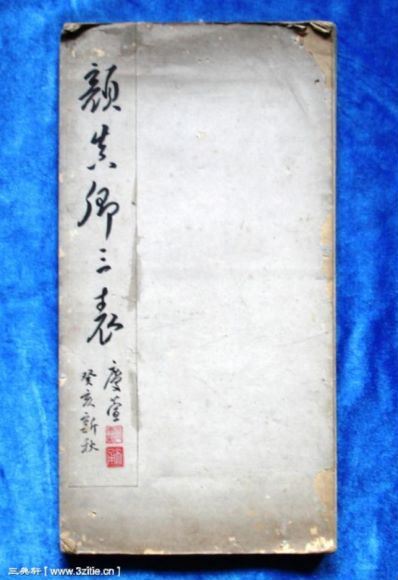 顏真卿三表
慶萱
癸亥新秋
三典轩 [ www.3zitie.cn ]